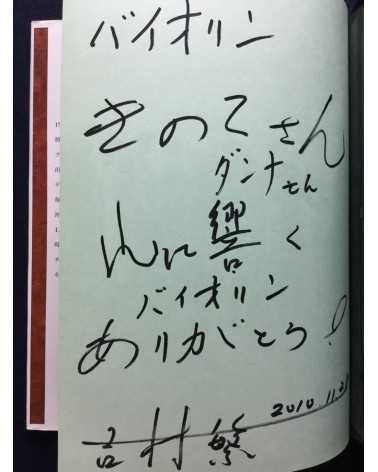 バイオリン
きのてさん
ダンナさん
心に響く
バイオリン
ありがとう!
吉村 繁